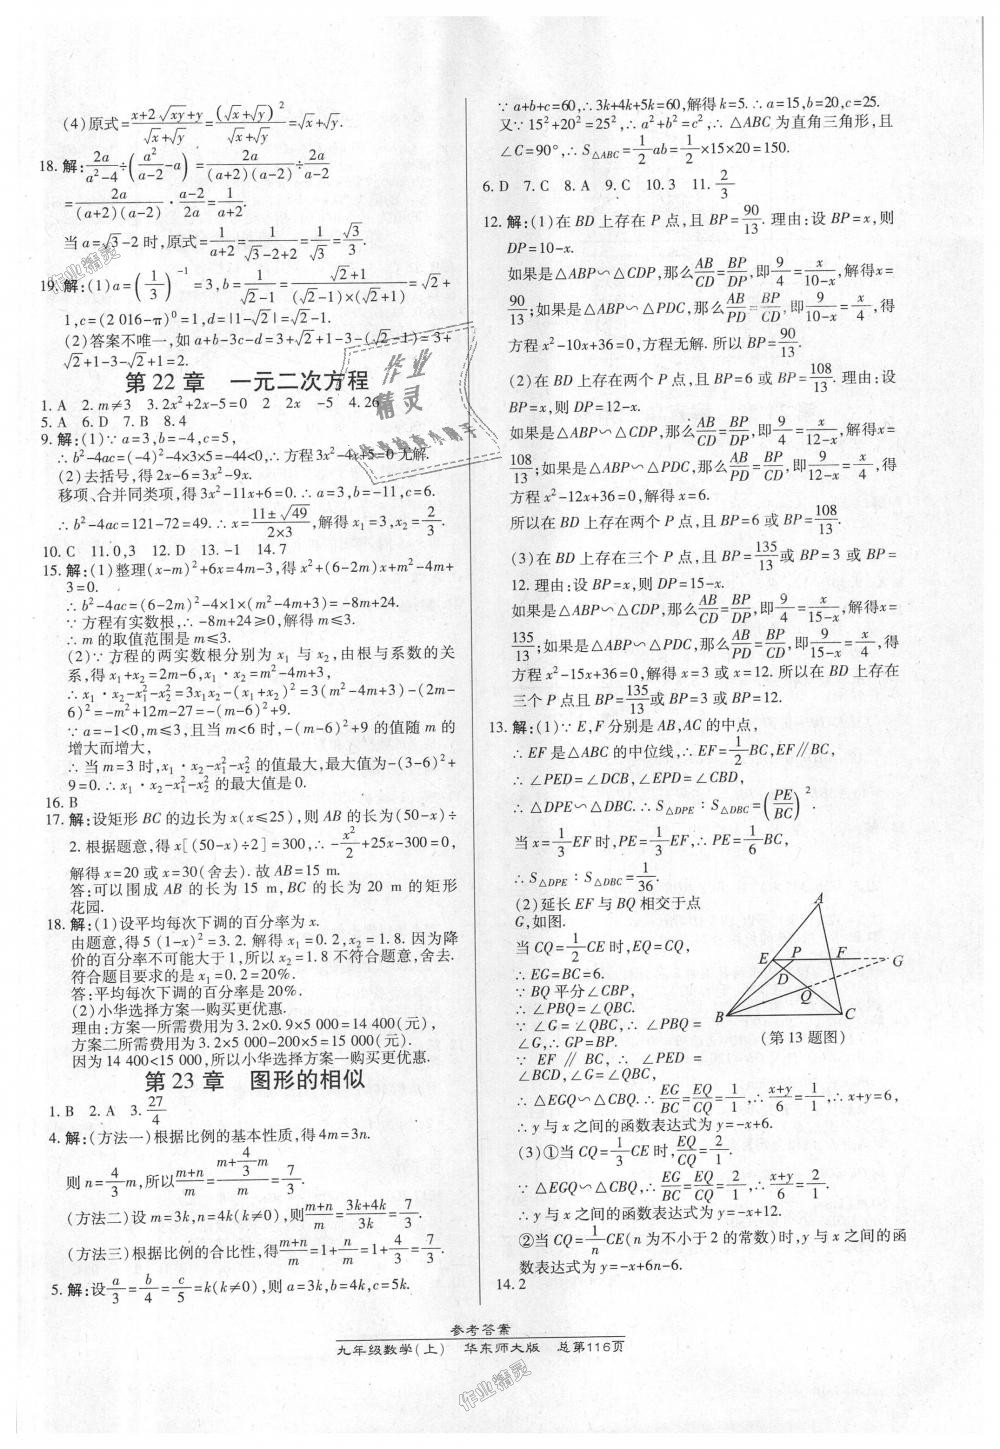 (4)原式=\frac{x+2\sqrt{xy}+y}{\sqrt{x}+\sqrt{y}}=\frac{(\sqrt{x}+\sqrt{y})^2}{\sqrt{x}+\sqrt{y}}=\sqrt{x}+\sqrt{y}.
18. 解:\frac{2a}{a^2-4}÷(\frac{a^2}{a-2}-a)=\frac{2a}{(a+2)(a-2)}÷\frac{2a}{a-2}
=\frac{2a}{(a+2)(a-2)}·\frac{a-2}{2a}=\frac{1}{a+2}.
当 a=\sqrt{3}-2 时,原式=\frac{1}{a+2}=\frac{1}{\sqrt{3}-2+2}=\frac{1}{\sqrt{3}}=\frac{\sqrt{3}}{3}.
19. 解:(1)a=(\frac{1}{3})^{-1}=3,b=\frac{1}{\sqrt{2}-1}=\frac{\sqrt{2}+1}{(\sqrt{2}-1)×(\sqrt{2}+1)}=\sqrt{2}+
1,c=(2 016-π)^0=1,d=|1-\sqrt{2}|=\sqrt{2}-1.
(2)答案不唯一,如 a+b-3c-d=3+\sqrt{2}+1-3-(\sqrt{2}-1)=3+
\sqrt{2}+1-3-\sqrt{2}+1=2.
第 22 章 一元二次方程
1. A 2. m≠3 3. 2x^2+2x-5=0 2 2x -5 4. 26
5. A 6. D 7. B 8. 4
9. 解:(1)∵ a=3,b=-4,c=5,
∴ b^2-4ac=(-4)^2-4×3×5=-44<0,∴ 方程3x^2-4x+5=0无解.
(2)去括号,得 2x-6=3x^2-9x.
移项、合并同类项,得 3x^2-11x+6=0. ∴ a=3,b=-11,c=6.
∴ b^2-4ac=121-72=49. ∴ x=\frac{11±\sqrt{49}}{2×3},解得 x_1=3,x_2=\frac{2}{3}.
10. C 11. 0,3 12. D 13. -1 14. 7
15. 解:(1)整理(x-m)^2+6x=4m-3,得 x^2+(6-2m)x+m^2-4m+
3=0.
∴ b^2-4ac=(6-2m)^2-4×1×(m^2-4m+3)=-8m+24.
∵ 方程有实数根,∴ -8m+24≥0,解得 m≤3.
∴ m 的取值范围是 m≤3.
(2)∵ 方程的两实数根分别为 x_1 与 x_2,由根与系数的关
系,得 x_1+x_2=2m-6,x_1·x_2=m^2-4m+3,
∴ x_1·x_2-x_1^2-x_2^2=3x_1x_2-(x_1+x_2)^2=3(m^2-4m+3)-(2m-
6)^2=-m^2+12m-27=-(m-6)^2+9.
∵ a=-1<0,m≤3,且当 m<6 时,-(m-6)^2+9 的值随 m 的
增大而增大,
∴ 当 m=3 时,x_1·x_2-x_1^2-x_2^2 的值最大,最大值为-(3-6)^2+
9=0. ∴ x_1·x_2-x_1^2-x_2^2 的最大值是 0.
16. B
17. 解:设矩形 BC 的边长为 x(x≤25),则 AB 的长为(50-x)÷
2. 根据题意,得 x[(50-x)÷2]=300,∴ -\frac{x^2}{2}+25x-300=0,
解得 x=20 或 x=30(舍去). 故 AB=15 m.
答:可以围成 AB 的长为 15 m,BC 的长为 20 m 的矩形
花园.
18. 解:(1)设平均每次下调的百分率为 x.
由题意,得 5 (1-x)^2=3. 2. 解得 x_1=0. 2,x_2=1. 8. 因为降
价的百分率不可能大于 1,所以 x_2=1. 8 不符合题意,舍去.
符合题目要求的是 x_1=0. 2=20%.
答:平均每次下调的百分率是 20%.
(2)小华选择方案一购买更优惠.
理由:方案一所需费用为 3. 2×0. 9×5 000=14 400(元),
方案二所需费用为 3. 2×5 000-200×5=15 000(元).
因为 14 400<15 000,所以小华选择方案一购买更优惠.
第 23 章 图形的相似
1. B 2. A 3. \frac{27}{4}
4. 解:(方法一)根据比例的基本性质,得 4m=3n.
则 n=\frac{4}{3}m,所以\frac{m+n}{m}=\frac{m+\frac{4}{3}m}{m}=\frac{7}{3}.
(方法二)设 m=3k,n=4k(k≠0),则\frac{m+n}{m}=\frac{3k+4k}{3k}=\frac{7}{3}.
(方法三)根据比例的合比性,得\frac{m+n}{m}=1+\frac{n}{m}=1+\frac{4}{3}=\frac{7}{3}.
5. 解:设\frac{a}{3}=\frac{b}{4}=\frac{c}{5}=k(k≠0),则 a=3k,b=4k,c=5k.
∵ a+b+c=60,∴ 3k+4k+5k=60,解得 k=5. ∴ a=15,b=20,c=25.
又∵ 15^2+20^2=25^2,∴ a^2+b^2=c^2,∴ △ABC 为直角三角形,且
∠C=90°,∴ S_{△ABC}=\frac{1}{2}ab=\frac{1}{2}×15×20=150.
6. D 7. C 8. A 9. C 10. 3 11. \frac{2}{3}
12. 解:(1)在 BD 上存在 P 点,且 BP=\frac{90}{13}. 理由:设 BP=x,则
DP=10-x.
如果是△ABP∽△CDP,那么\frac{AB}{CD}=\frac{BP}{DP},即\frac{9}{4}=\frac{x}{10-x},解得x=
\frac{90}{13};如果是△ABP∽△PDC,那么\frac{AB}{PD}=\frac{BP}{CD},即\frac{9}{10-x}=\frac{x}{4},得
方程 x^2-10x+36=0,方程无解. 所以 BP=\frac{90}{13}.
(2)在 BD 上存在两个 P 点,且 BP=6 或 BP=\frac{108}{13}. 理由:设
BP=x,则 DP=12-x.
如果是△ABP∽△CDP,那么\frac{AB}{CD}=\frac{BP}{DP},即\frac{9}{4}=\frac{x}{12-x},解得x=
\frac{108}{13};如果是△ABP∽△PDC,那么\frac{AB}{PD}=\frac{BP}{CD},即\frac{9}{12-x}=\frac{x}{4},得
方程 x^2-12x+36=0,解得 x=6.
所以在 BD 上存在两个 P 点,且 BP=6 或 BP=\frac{108}{13}.
(3)在 BD 上存在三个 P 点,且 BP=\frac{135}{13}或 BP=3 或 BP=
12. 理由:设 BP=x,则 DP=15-x.
如果是△ABP∽△CDP,那么\frac{AB}{CD}=\frac{BP}{DP},即\frac{9}{4}=\frac{x}{15-x},解得x=
\frac{135}{13};如果是△ABP∽△PDC,那么\frac{AB}{PD}=\frac{BP}{CD},即\frac{9}{15-x}=\frac{x}{4},得
方程 x^2-15x+36=0,解得 x=3 或 x=12. 所以在 BD 上存在
三个 P 点且 BP=\frac{135}{13}或 BP=3 或 BP=12.
13. 解:(1)∵ E,F 分别是 AB,AC 的中点,
∴ EF 是△ABC 的中位线,∴ EF=\frac{1}{2}BC,EF∥BC,
∴ ∠PED=∠DCB,∠EPD=∠CBD,
∴ △DPE∽△DBC. ∴ S_{△DPE}:S_{△DBC}=(\frac{PE}{BC})^2.
当 x=\frac{1}{3}EF 时,PE=\frac{1}{3}EF,∴ PE=\frac{1}{6}BC,
∴ S_{△DPE}:S_{△DBC}=\frac{1}{36}.
(2)延长 EF 与 BQ 相交于点
G,如图.
当 CQ=\frac{1}{2}CE 时,EQ=CQ,
∴ EG=BC=6.
∵ BQ 平分∠CBP,
∴ ∠PBQ=∠QBC.
∵ ∠G=∠QBC,∴ ∠PBQ=
∠G,∴ GP=BP.
∵ EF∥BC,∴ ∠PED=
∠BCD,∠G=∠QBC,
∴ △EGQ∽△CBQ. ∴ \frac{EG}{BC}=\frac{EQ}{CQ}=\frac{1}{1},∴ \frac{x+y}{6}=\frac{1}{1},∴ x+y=6,
∴ y 与 x 之间的函数表达式为 y=-x+6.
(3)①当 CQ=\frac{1}{3}CE 时,\frac{EQ}{CQ}=\frac{2}{1}.
∵ △EGQ∽△CBQ,∴ \frac{EG}{BC}=\frac{EQ}{CQ}=\frac{2}{1},∴ \frac{x+y}{6}=\frac{2}{1}.
∴ y 与 x 之间的函数表达式为 y=-x+12.
②当 CQ=\frac{1}{n}CE(n 为不小于 2 的常数)时,y 与 x 之间的函
数表达式为 y=-x+6n-6.
14. 2
A
E P F G
D
Q
B C
(第 13 题图)
参考答案
九年级数学(上) 华东师大版 总第116页
作业精灵
作业
精灵
作业精灵